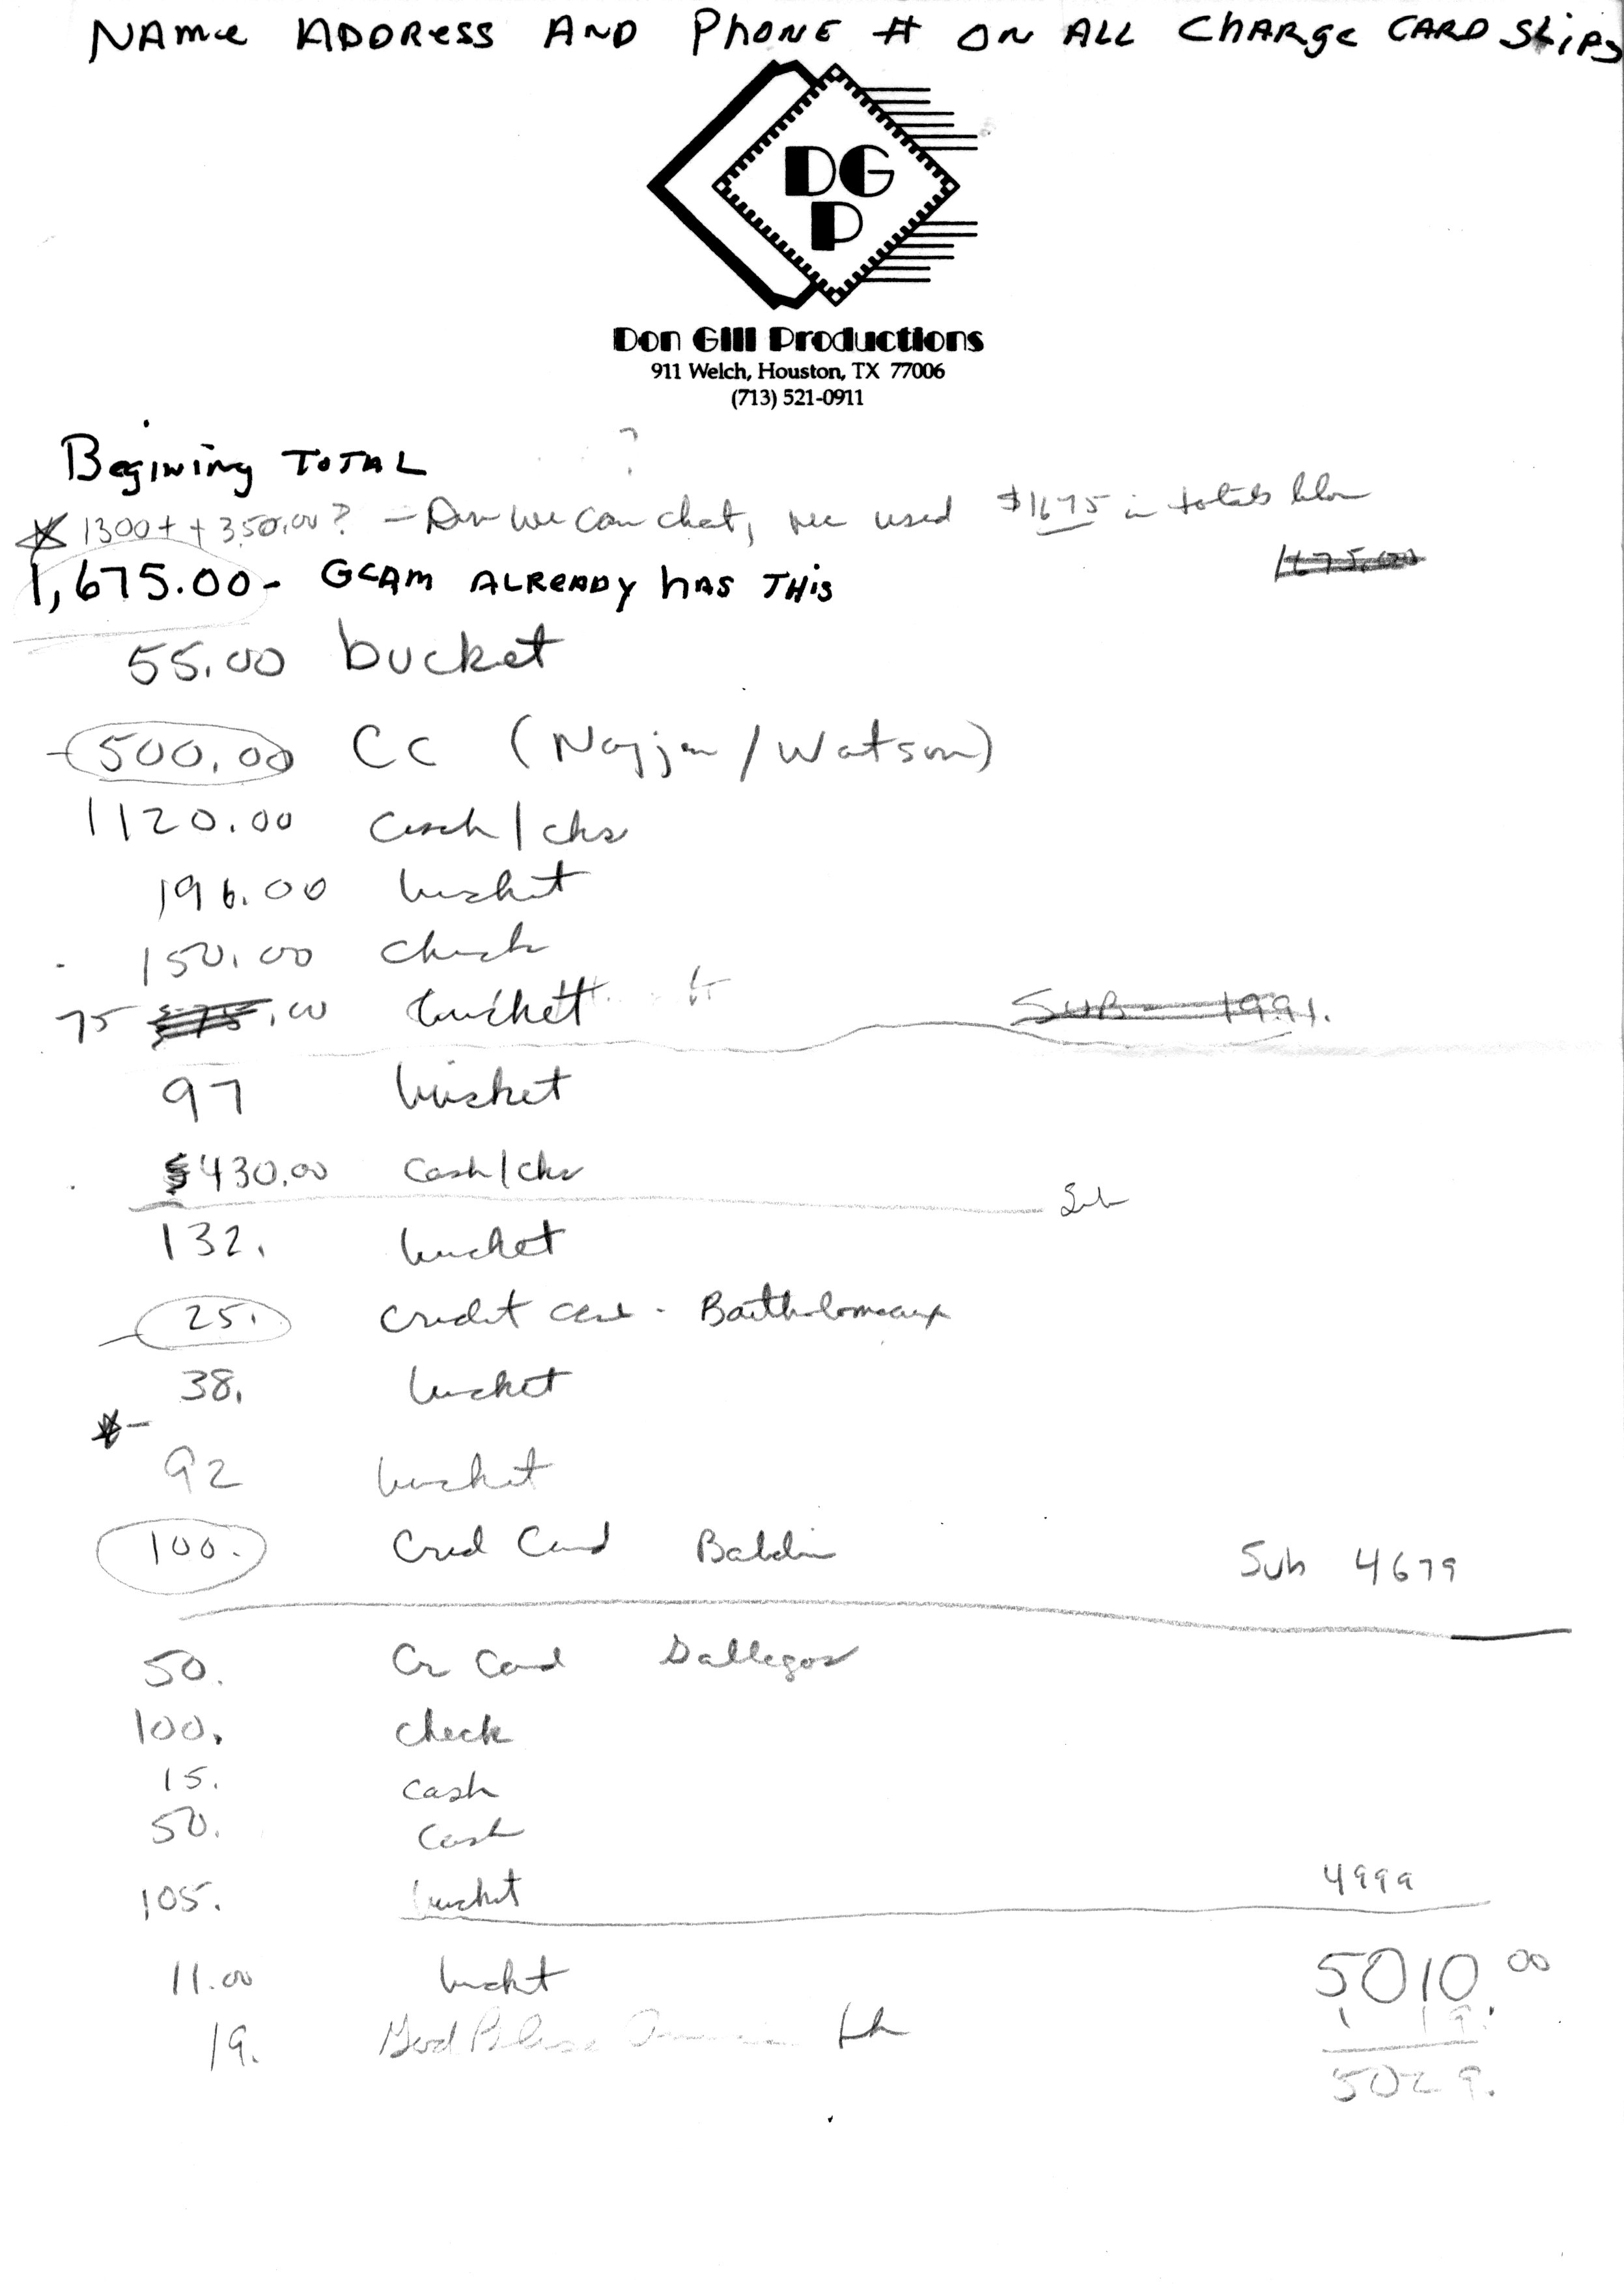 NAMe ADDRess AND PhONE # ON ALL ChARge CARD SLiPs
DG
P
Don Gill Productions
911 Welch, Houston, TX 77006
(713) 521-0911
Begining TOTAL
1300+ + 350.00? - we can chat, we used $1675 in totals
1675.00
1,675.00 - GCAM ALReADy hAS THis
55.00 bucket
500.00 CC ( /Watson)
1120.00 Cash/cks
196.00 bucket
150.00 Check
75 .00 bucket
SUB 1991.
97 bucket
$430.00 Cash/cks
Sub
132. bucket
25. Credit Card - Bartholomeaux
38. bucket
92 bucket
100. Cred Card
Sub 4679
50. Cr Card Gallegos
100. check
15. cash
50. Cash
105. bucket
4999
11.00 bucket
5010 00
19.
19.
5029.